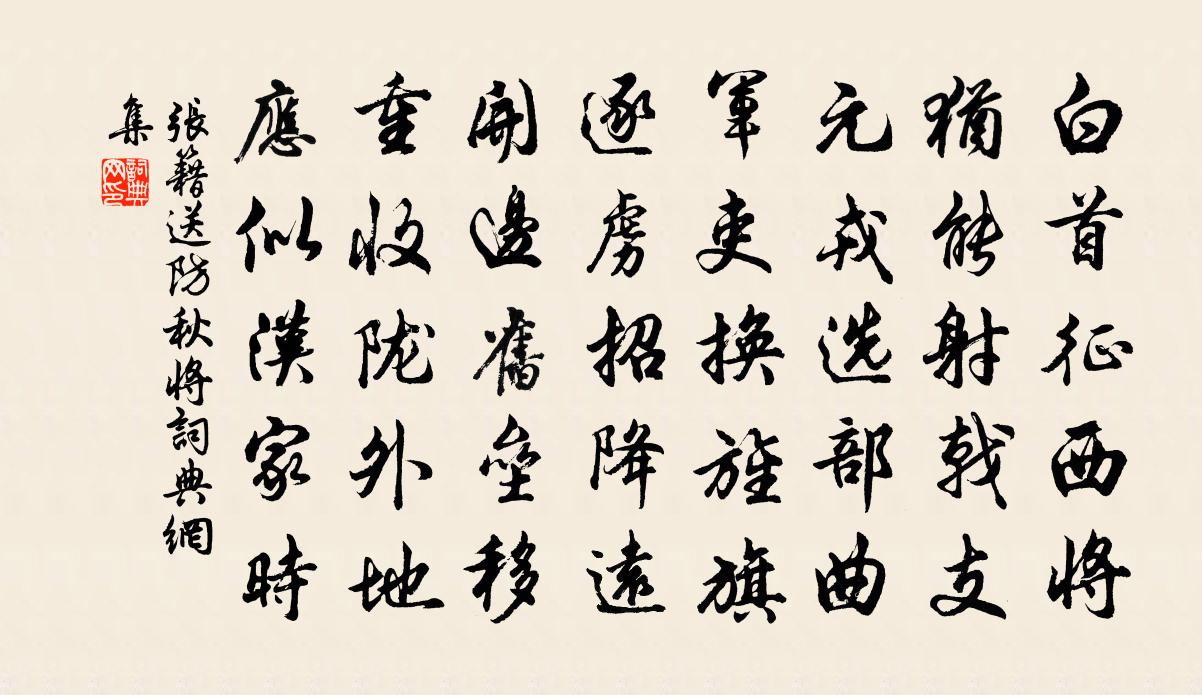 白首征西將
猶能射戟支
元戎选部曲
軍吏換旌旗
逐虜招降遠
開邊舊壘移
重收陇外地
應似漢家時
張籍送防秋將詞典網
集
詞典
网印